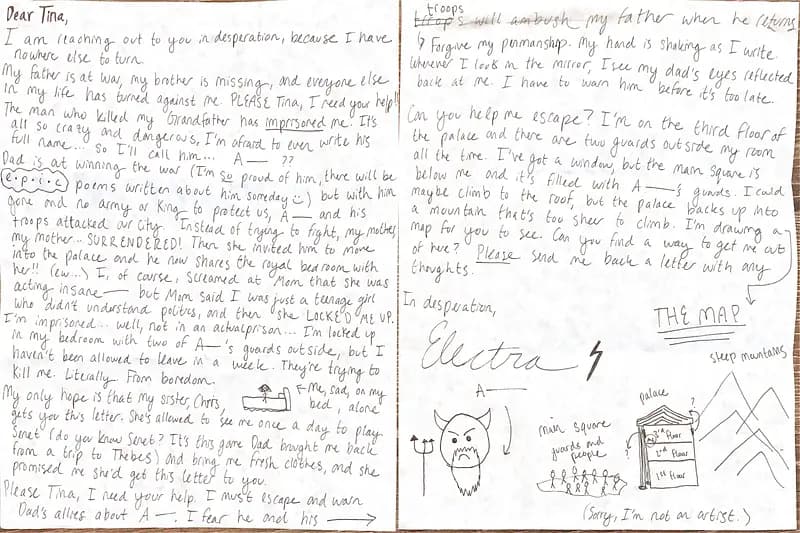 Dear Tina,
I am reaching out to you in desperation, because I have
nowhere else to turn.
My father is at war, my brother is missing, and everyone else
in my life has turned against me. PLEASE Tina, I need your help!!
The man who killed my Grandfather has imprisoned me. It's
all so crazy and dangerous, I'm afraid to even write his
full name... so I'll call him... A— ??
Dad is at winning the war (I'm so proud of him, there will be
e·p·i·c poems written about him someday) but with him
gone and no army or King to protect us, A— and his
troops attacked our city. Instead of trying to fight, my mother,
my mother... SURRENDERED! Then she invited him to move
into the palace and he now shares the royal bedroom with
her!! (ew...) I, of course, screamed at Mom that she was
acting insane— but Mom said I was just a teenage girl
who didn't understand politics, and then she LOCKED ME UP.
I'm imprisoned... well, not in an actual prison... I'm locked up
in my bedroom with two of A—'s guards outside, but I
haven't been allowed to leave in a week. They're trying to
kill me. Literally. From boredom.
My only hope is that my sister, Chris,
gets you this letter. She's allowed to
see me once a day to play
Senet (do you know Senet? It's this game Dad brought me back
from a trip to Thebes) and bring me fresh clothes, and she
promised me she'd get this letter to you.
Please Tina, I need your help. I must escape and warn
Dad's allies about A—. I fear he and his
←Me, sad, on my
bed, alone
troops
troops will ambush my father when he returns
Forgive my penmanship. My hand is shaking as I write.
Whenever I look in the mirror, I see my dad's eyes reflected
back at me. I have to warn him before it's too late.
Can you help me escape? I'm on the third floor of
the palace and there are two guards outside my room
all the time. I've got a window, but the main square is
below me and it's filled with A—'s guards. I could
maybe climb to the roof, but the palace backs up into
a mountain that's too sheer to climb. I'm drawing a
map for you to see. Can you find a way to get me out
of here? Please send me back a letter with any
thoughts.
In desperation,
Electra
THE MAP
A—
main square
guards and
people
palace
?
?
3rd Floor
2nd Floor
1st Floor
steep mountains
(Sorry, I'm not an artist.)